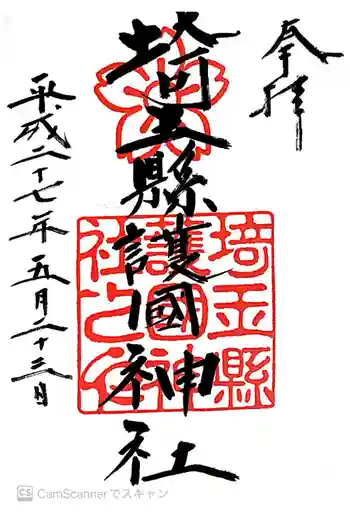 奉拝
埼玉縣護國神社
埼玉縣
護國神
社之印
平成二十七年五月二十三日
CS CamScannerでスキャン